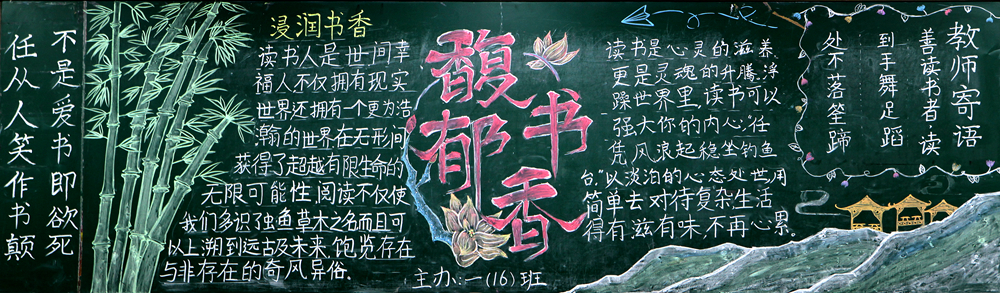 不是爱书即欲死
任从人笑作书颠
浸润书香
读书人是世间幸
福人不仅拥有现实
世界还拥有一个更为浩
瀚的世界在无形间
获得了超越有限生命的
无限可能性,阅读不仅使
我们多识了虫鱼草木之名而且可
以上溯到远古及未来,饱览存在
与非存在的奇风异俗。
馥郁书香
主办:一(16)班
读书是心灵的滋养
更是灵魂的升腾,浮
躁世界里,读书可以
强大你的内心。"任
凭风浪起稳坐钓鱼
台"以淡泊的心态处世用
简单去对待复杂生活
得有滋有味,不再心累。
教师寄语
善读书者读
到手舞足蹈
处不落筌蹄